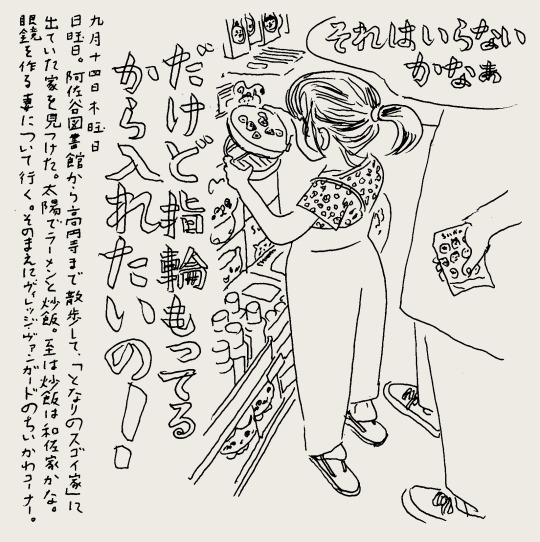 それはいらない
かなぁ
だけど指輪もってる
から入れたいの!
九月十四日木曜日
日曜日。阿佐谷図書館から高円寺まで散歩して、「となりのスゴイ家」に
出ていた家を見つけた。太陽でラーメンと炒飯。至は炒飯は和佐家かな。
眼鏡を作る妻について行く。そのまえにヴィレッジヴァンガードのちいかわコーナー。